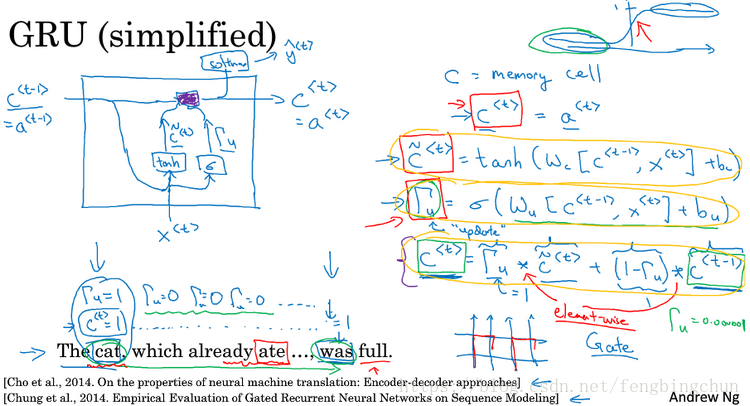 GRU (simplified)
softmax → ŷ<t>
c<t-1> = a<t-1>
c̃<t>
Γu
c<t> = a<t>
tanh
σ
x<t>
1
C = memory cell
→ c<t> = a<t>
→ c̃<t> = tanh(Wc[c<t-1>, x<t>] + bc)
→ Γu = σ(Wu[c<t-1>, x<t>] + bu)
"update"
c<t> = Γu * c̃<t> + (1-Γu) * c<t-1>
= 1
element-wise
Γu = 0.000001
Gate
Γu=1 Γu=0 Γu=0 Γu=0 .....
→ c<t>=1 ..... =1
→ The cat, which already ate ..., was full.
[Cho et al., 2014. On the properties of neural machine translation: Encoder-decoder approaches] ←
[Chung et al., 2014. Empirical Evaluation of Gated Recurrent Neural Networks on Sequence Modeling] ←
https://blog.csdn.net/fengbingchun
Andrew Ng